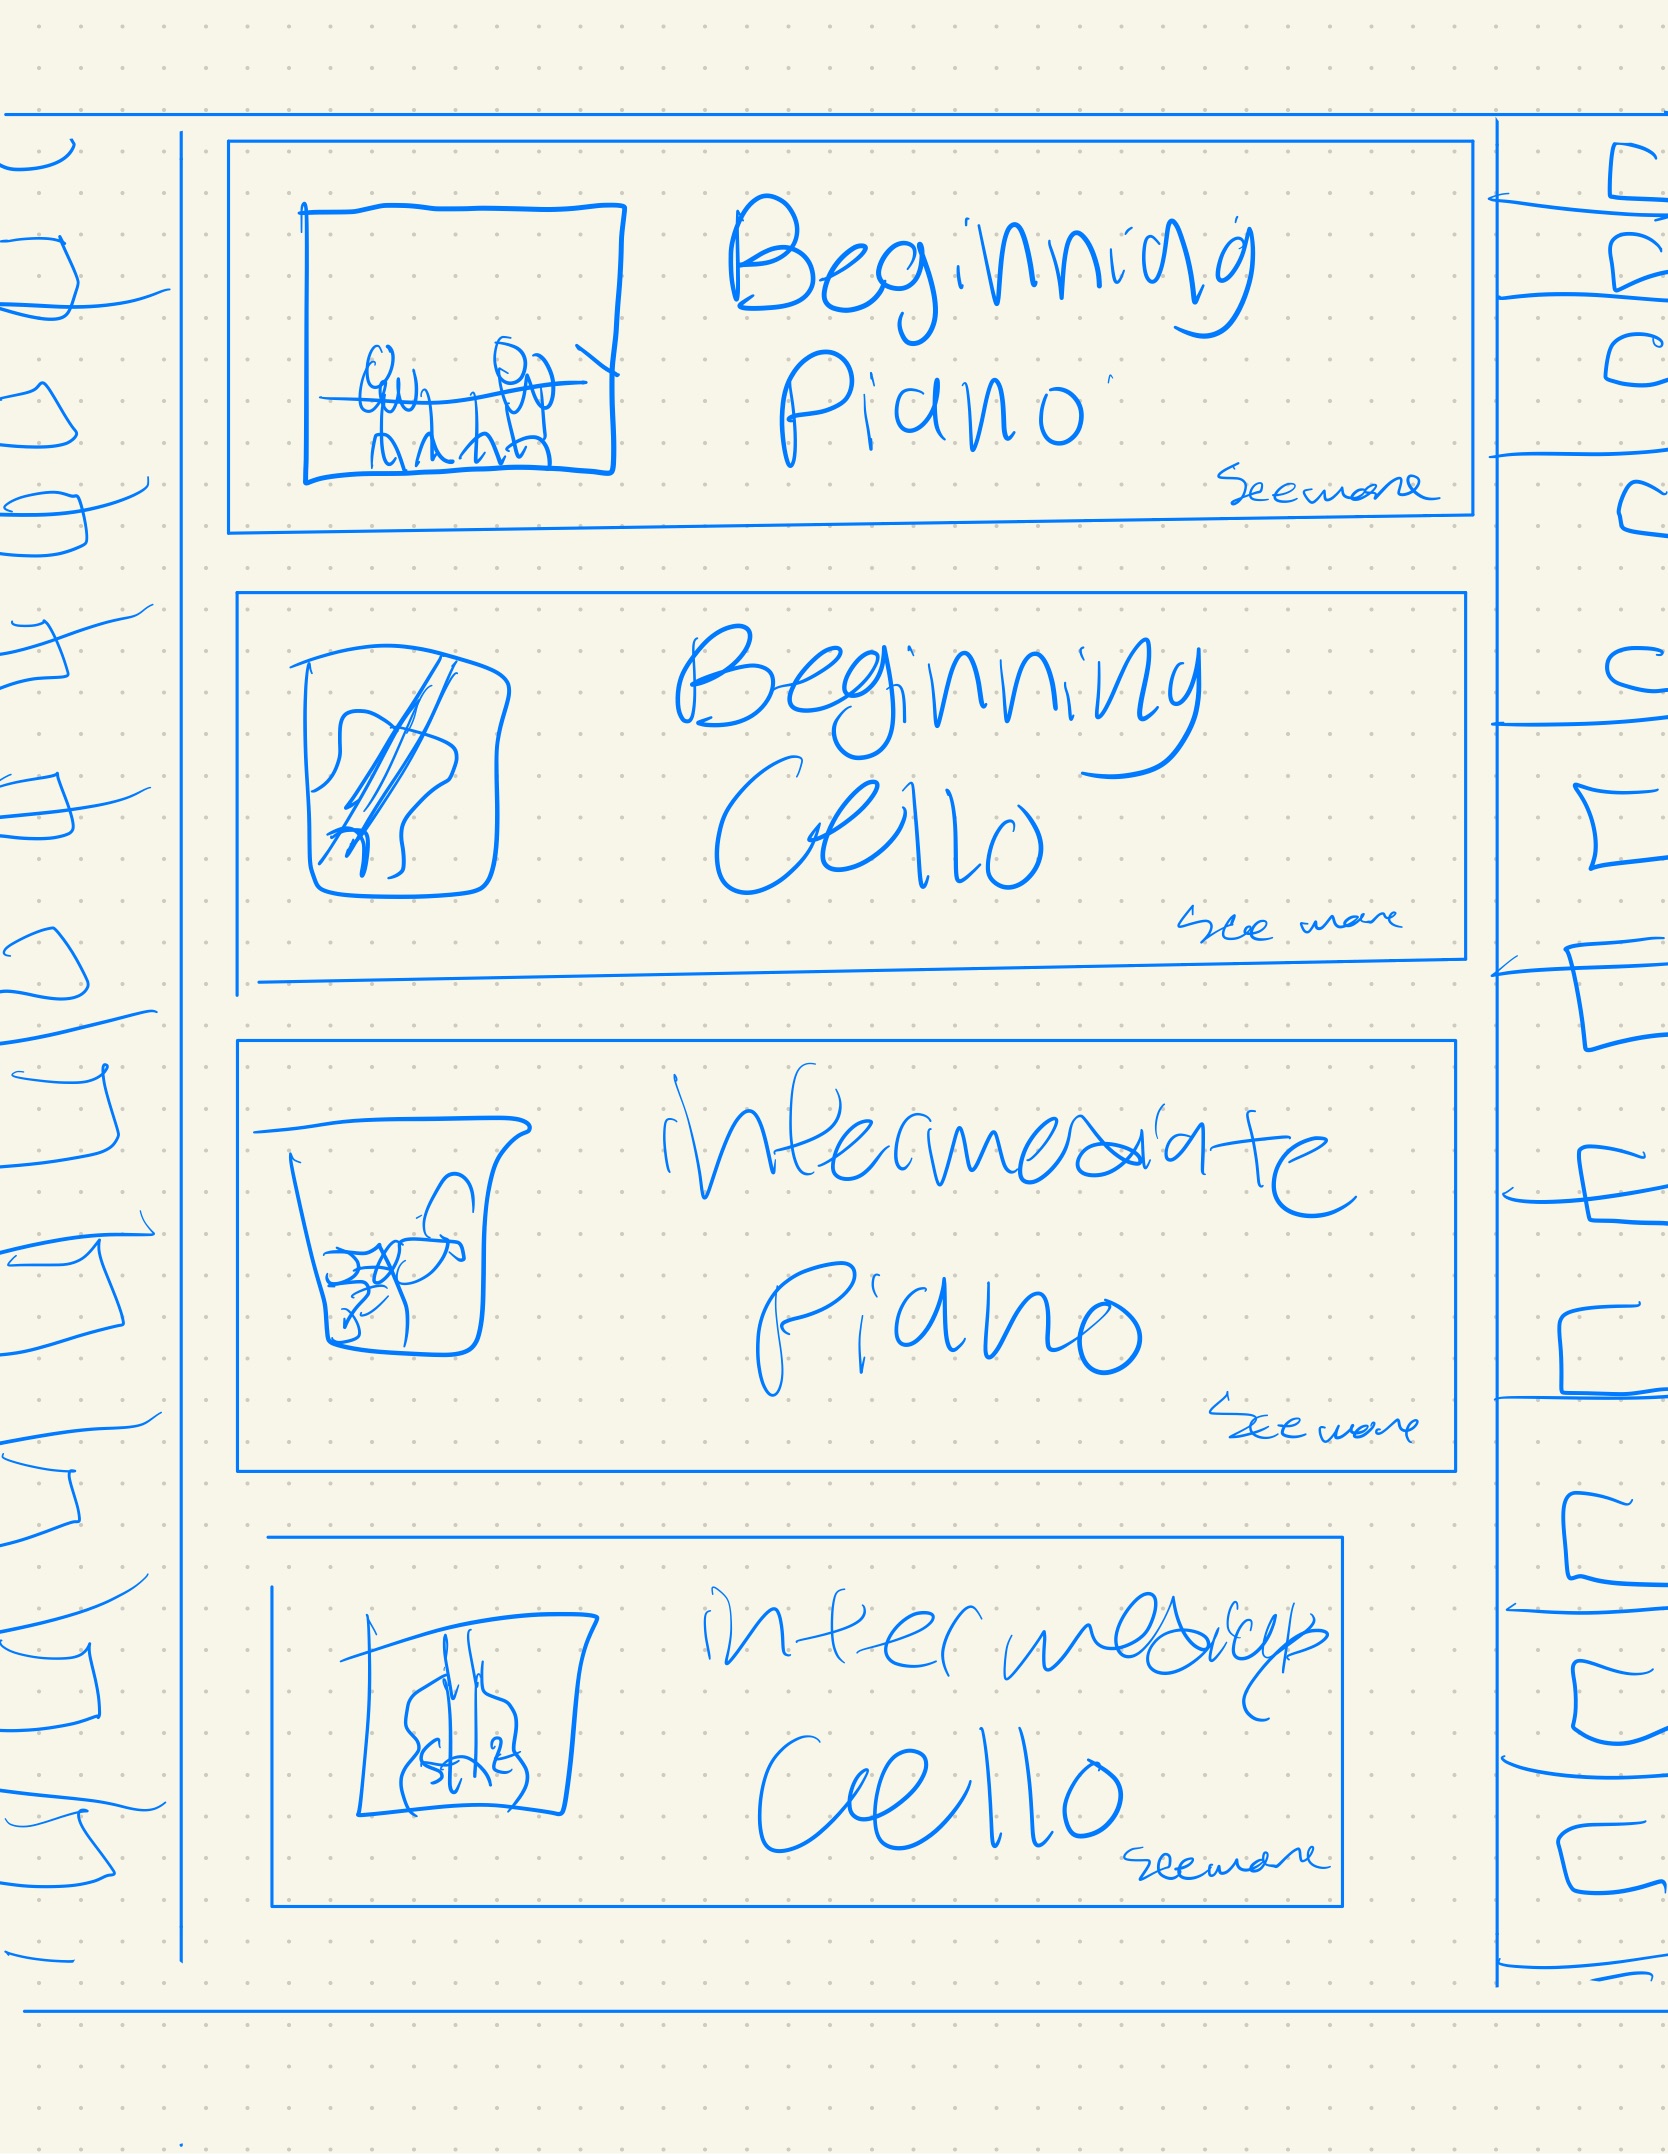 Beginning
Piano
See more
Beginning
Cello
See more
intermediate
Piano
See more
intermediate
Cello
See more